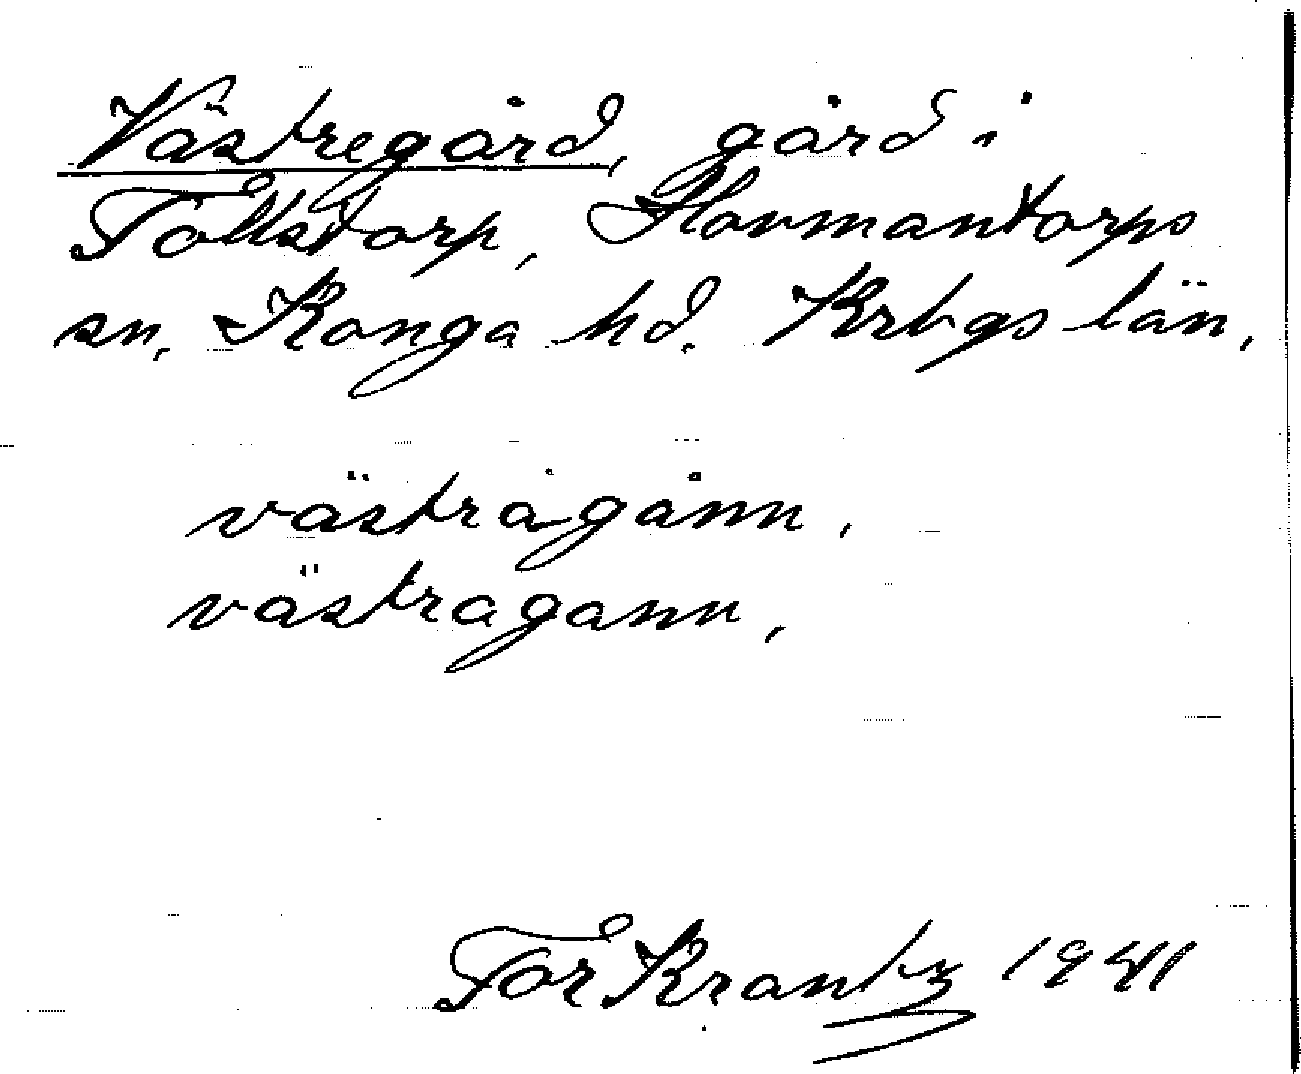 Västregård, gård i
Tollstorp, Hovmantorps
sn. Konga hd. Krbgs län,
västrågånn,
västragann,
Tor Krantz 1941